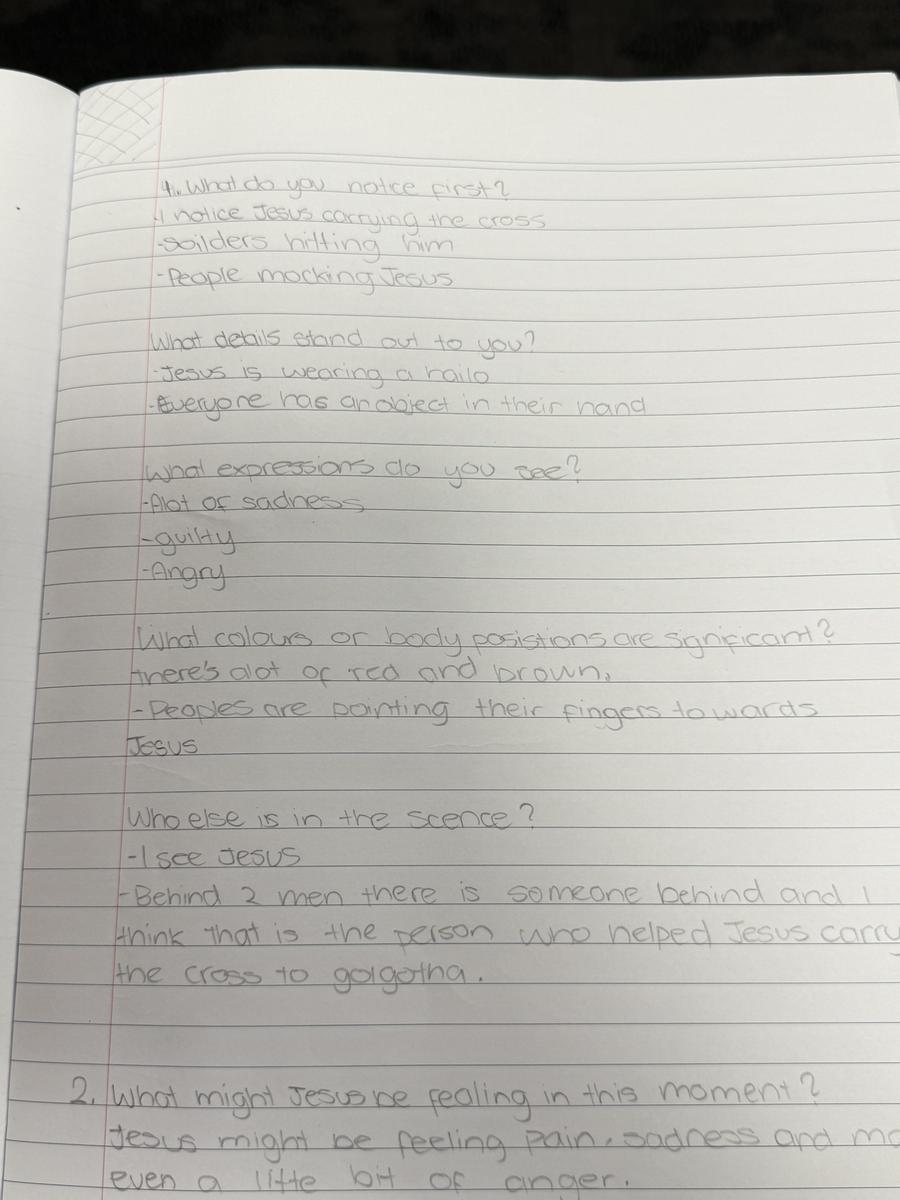 1. What do you notice first?
-I notice Jesus carrying the cross
-soilders hitting him
-People mocking Jesus
What details stand out to you?
-Jesus is wearing a hailo
-Everyone has an object in their hand
What expressions do you see?
-Alot of sadness
-guilty
-Angry
What colours or body posistions are significant?
there's alot of red and brown.
-Peoples are pointing their fingers towards
Jesus
Who else is in the scence?
-I see Jesus
-Behind 2 men there is someone behind and I
think that is the person who helped Jesus carry
the cross to golgotha.
2. What might Jesus be fealing in this moment?
Jesus might be feeling pain, sadness and
even a little bit of anger.